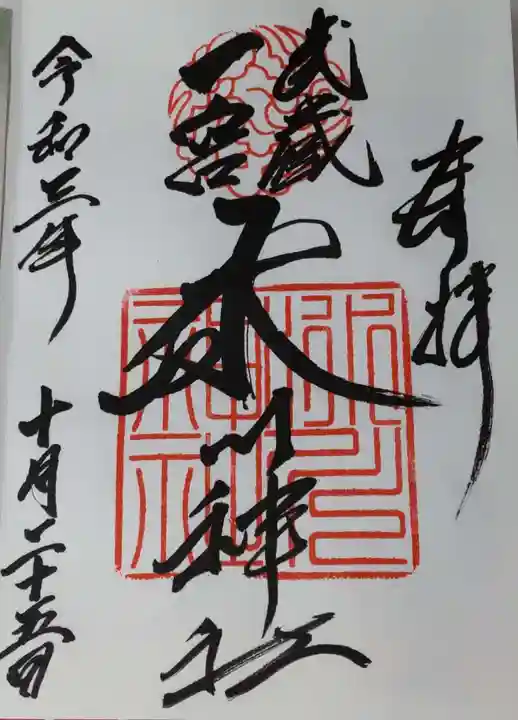 奉拝
武蔵
一宮
氷川神社
令和三年
十月二十五日
氷川
神社